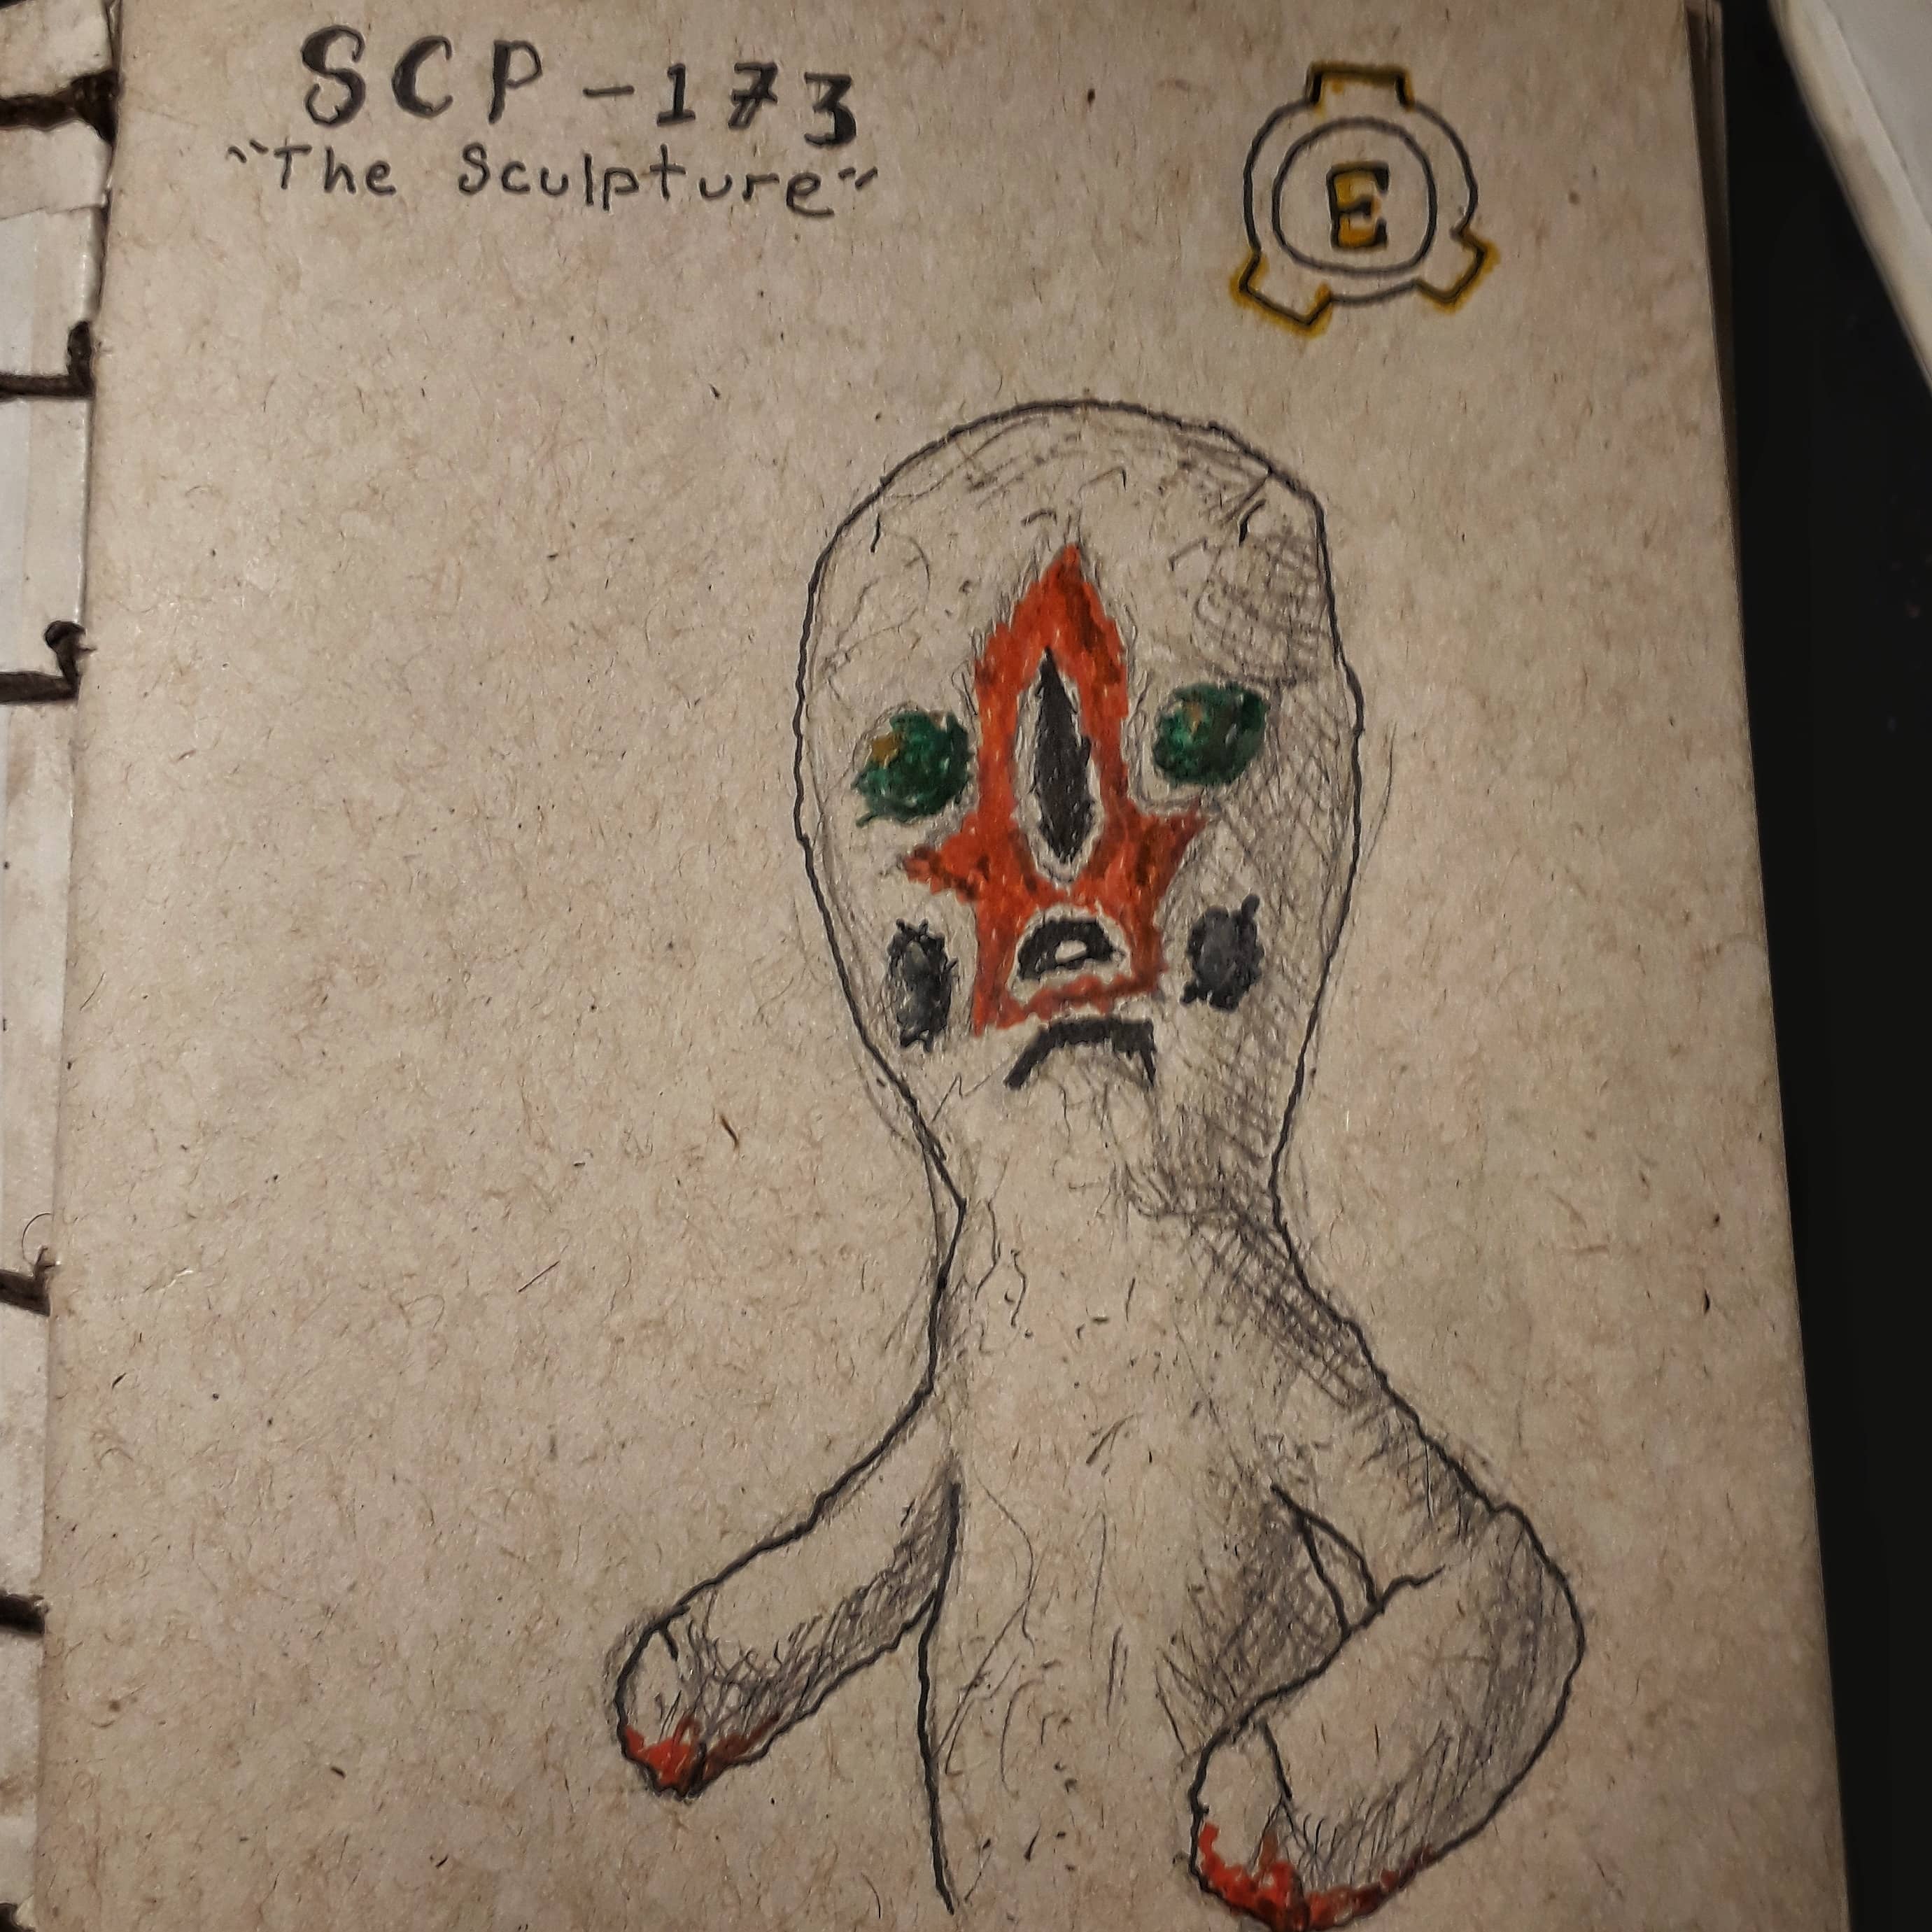 SCP-173
"The Sculpture"
E